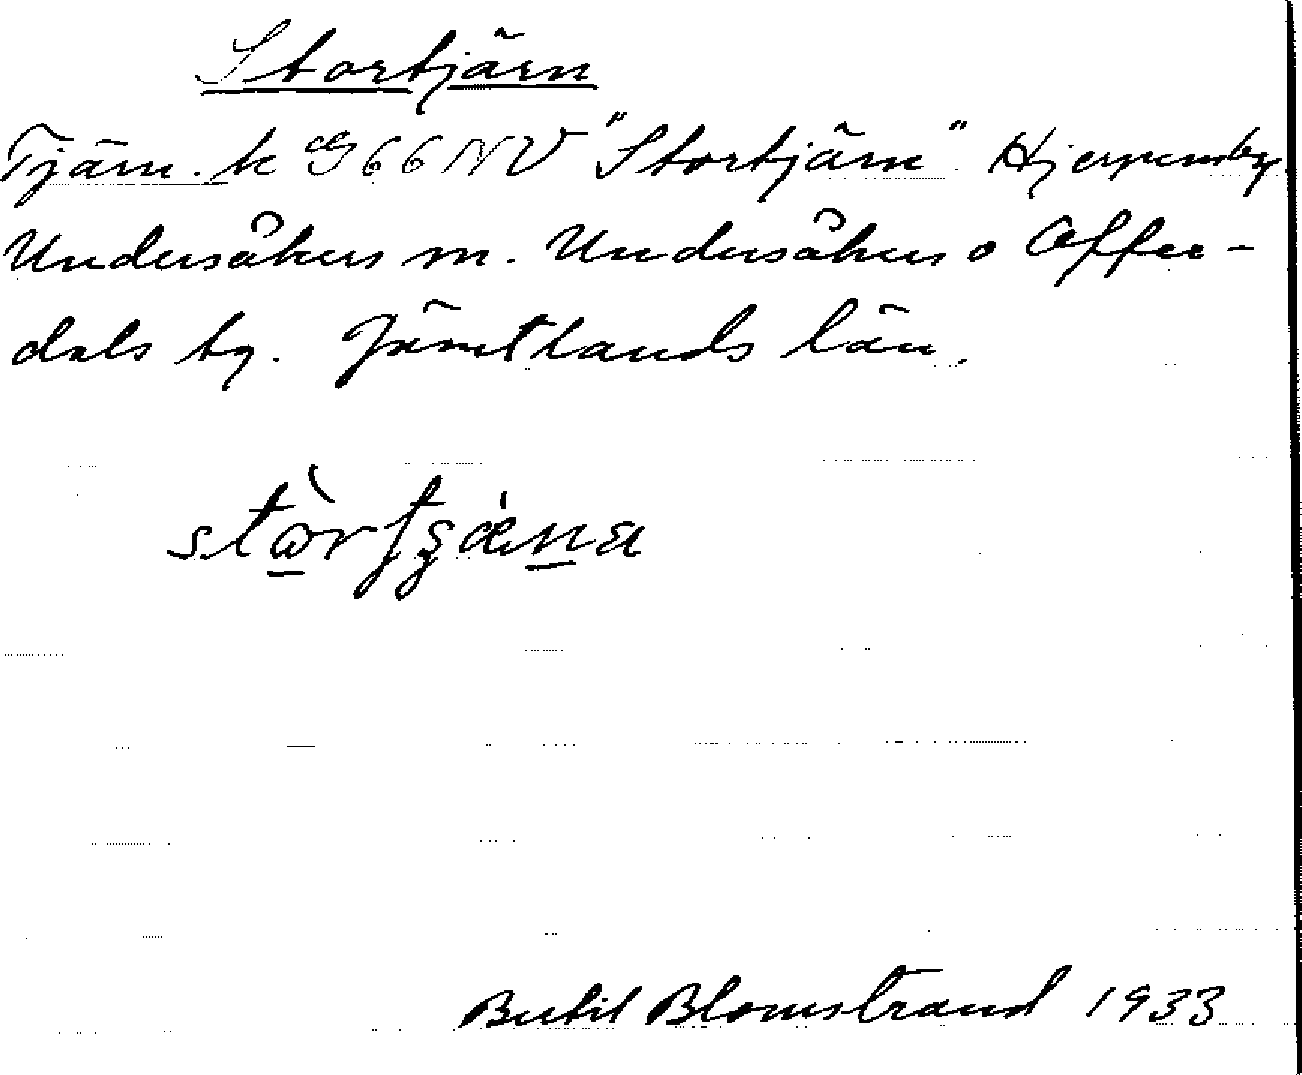 Stortjärn
Tjärn. k G 66 NV "Stortjärn" Hjerpensby
Undersåkers sn. Undersåkers o Offer-
dals tg. Jämtlands län.
Bertil Blomstrand 1933